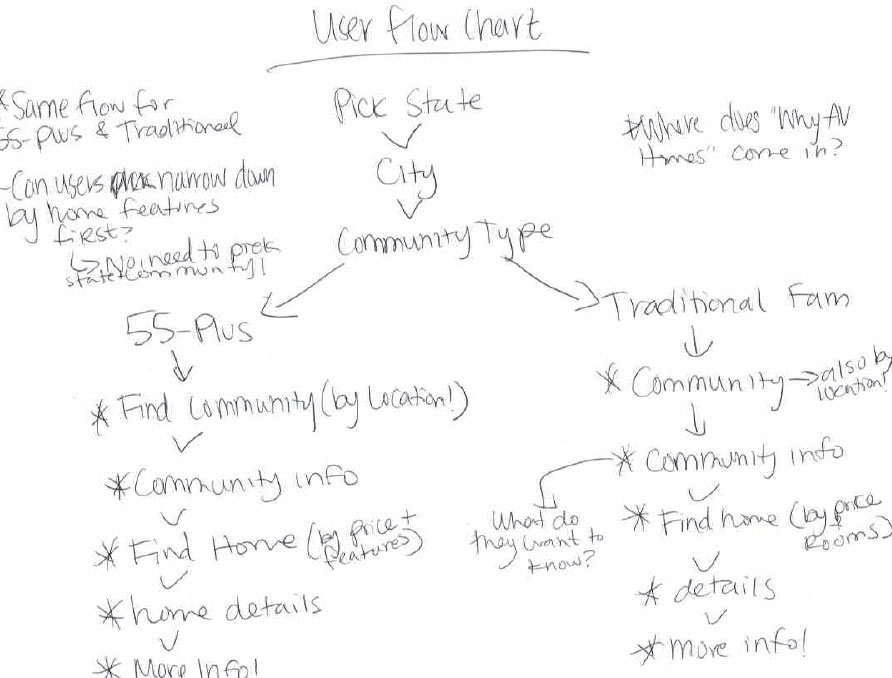 User Flow Chart
* Same flow for
55-Plus & Traditional
Pick State
*Where does "Why AV
Homes" come in?
-Can users narrow down
by home features
first?
↳ No need to pick
state + community!
City
Community Type
55-Plus
Traditional Fam
* Find Community (by Location!)
* Community → also by
location!
* Community info
* Community info
What do
they want to
know?
* Find Home (by price +
features)
* Find home (by price +
Rooms)
* home details
* details
* More Info!
* more info!